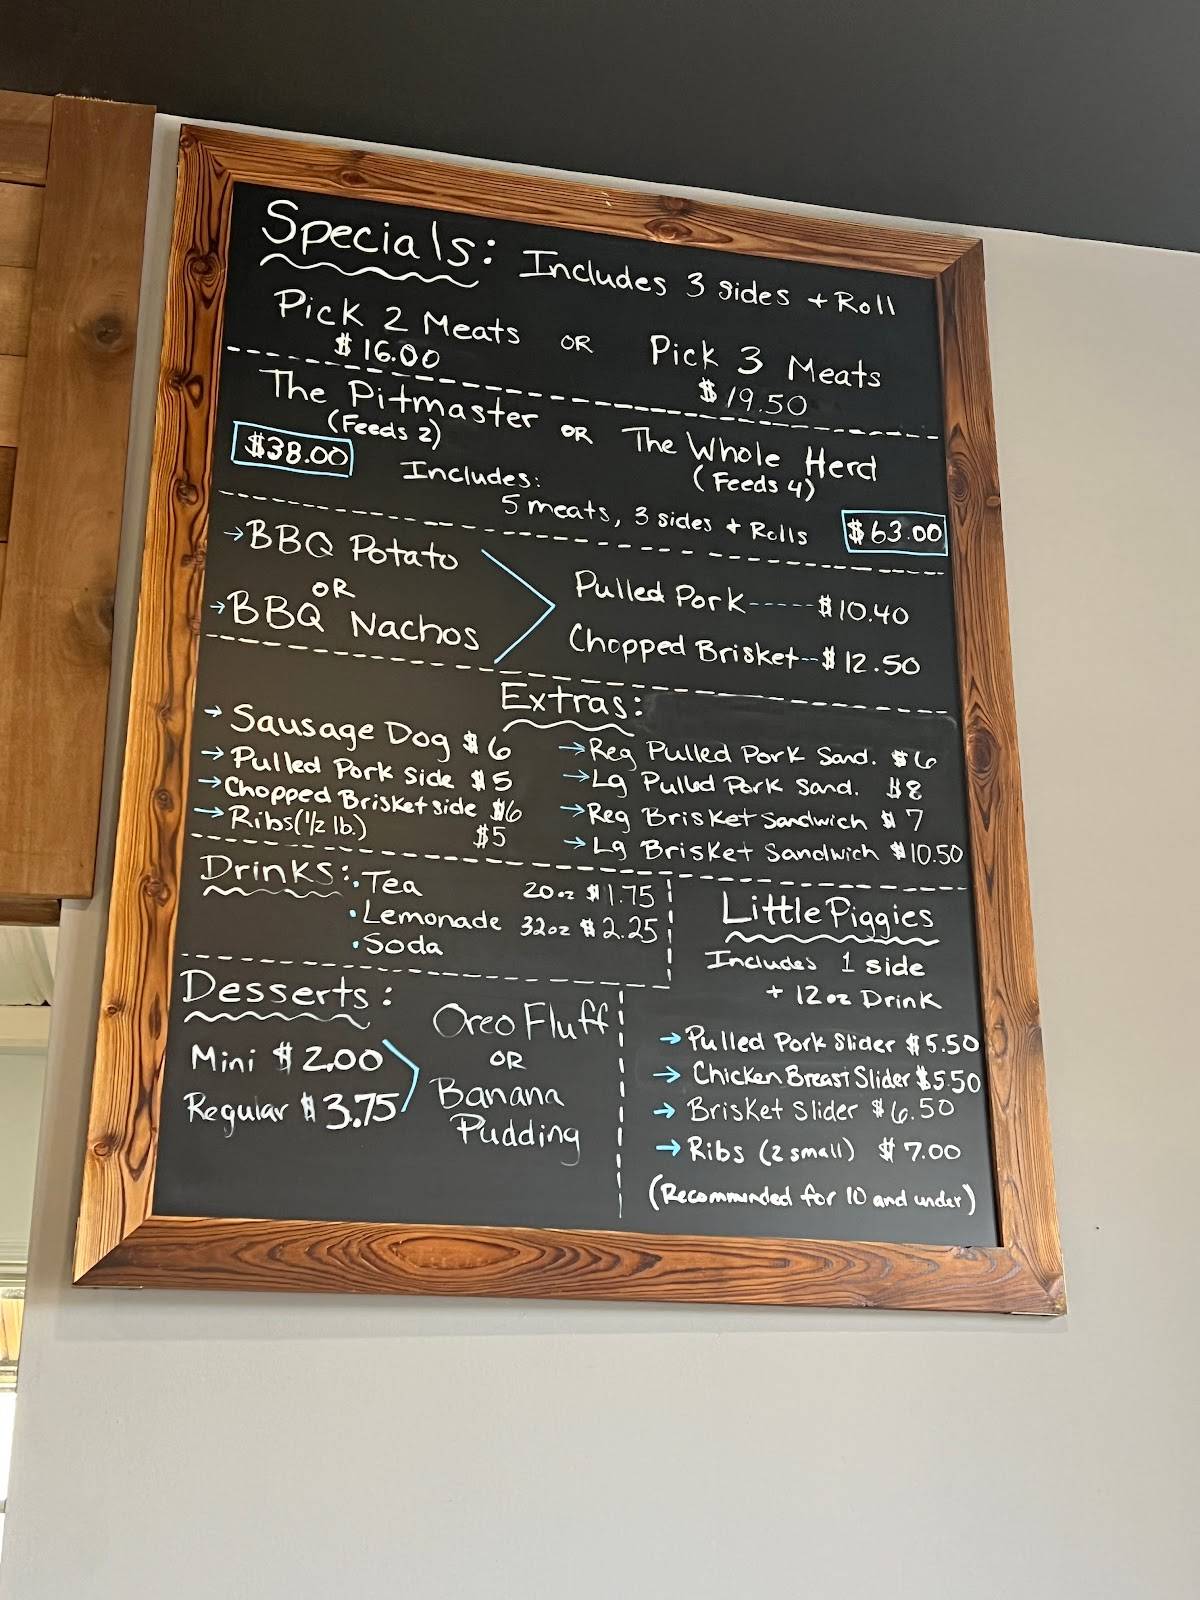 Specials: Includes 3 sides + Roll
Pick 2 Meats OR Pick 3 Meats
$16.00 $19.50
The Pitmaster OR The Whole Herd
(Feeds 2) (Feeds 4)
$38.00 Includes:
5 meats, 3 sides + Rolls $63.00
→BBQ Potato
OR
→BBQ Nachos
Pulled Pork-----$10.40
Chopped Brisket--$12.50
Extras:
→ Sausage Dog $6
→ Pulled Pork Side $5
→ Chopped Brisket side $6
→ Ribs (1/2 lb.) $5
→ Reg Pulled Pork Sand. $6
→ Lg Pulled Pork Sand. $8
→ Reg Brisket Sandwich $7
→ Lg Brisket Sandwich $10.50
Drinks: • Tea 20oz $1.75
• Lemonade 32oz $2.25
• Soda
Desserts:
Mini $2.00
Regular $3.75
Oreo Fluff
OR
Banana
Pudding
Little Piggies
Includes 1 side
+ 12oz Drink
→ Pulled Pork Slider $5.50
→ Chicken Breast Slider $5.50
→ Brisket Slider $6.50
→ Ribs (2 small) $7.00
(Recommended for 10 and under)